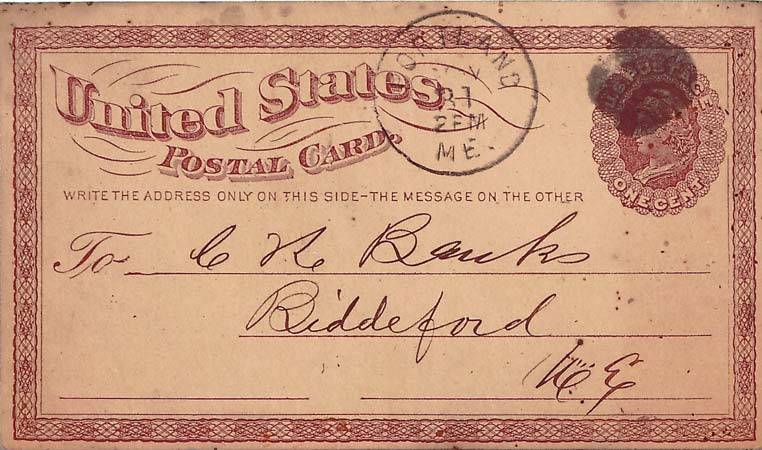 United States
Postal Card.
PORTLAND
31
2 PM
ME.
U.S. POSTAGE
ONE CENT
WRITE THE ADDRESS ONLY ON THIS SIDE - THE MESSAGE ON THE OTHER
To C H Banks
Biddeford